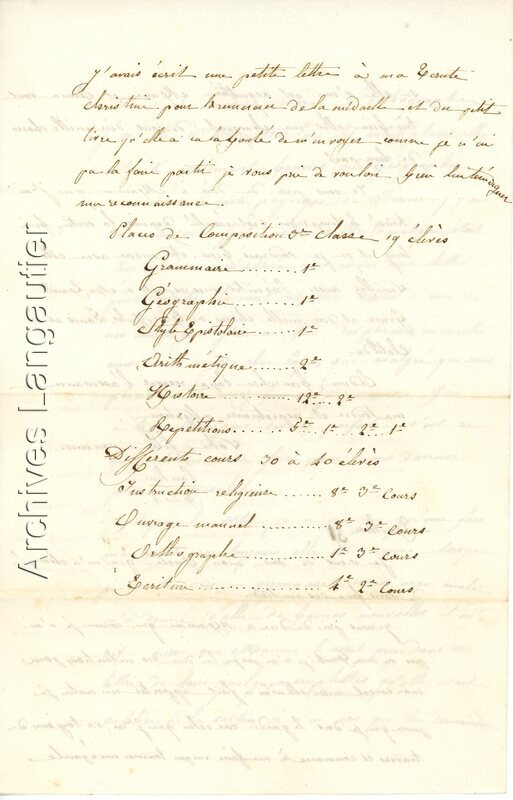 j'avais écrit une petite lettre à ma Tante
Christine pour la remercier de la médaille et du petit
livre qu'elle a eu la bonté de m'envoyer comme je n'ai
pu la faire partir je vous prie de vouloir bien lui témoigner
ma reconnaissance.
Places de Composition 3e Classe 19 élèves
Grammaire ........ 1e
Géographie ....... 1e
Style Epistolaire ...... 1e
Arithmétique ....... 2e
Histoire .......... 12e .. 2e
Répétitions ..... 5e .. 1e .. 2e .. 1e
Différents cours 30 à 40 élèves
Instruction religieuse ...... 8e 3e Cours
Ouvrage manuel ........ 8e 3e Cours
Orthographe .......... 1e 3e Cours
Ecriture ............... 4e 2e Cours
Archives Langautier